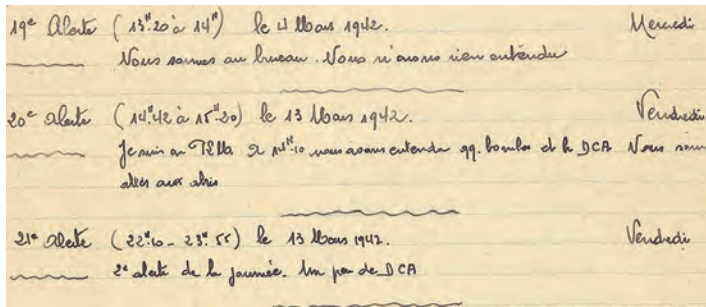 19e Alerte (13H.20 à 14H) le 4 Mars 1942. Mercredi
Nous sommes au bureau. Nous n'avons rien entendu
20e Alerte (14H.42 à 15H.20) le 13 Mars 1942. Vendredi
Je suis au à 14H.10 nous avons entendu qq. bombes et la DCA Nous som
allés aux abris
21e Alerte (22H.10 - 23H.55) le 13 Mars 1942. Vendredi
2e alerte de la journée. Un peu de DCA